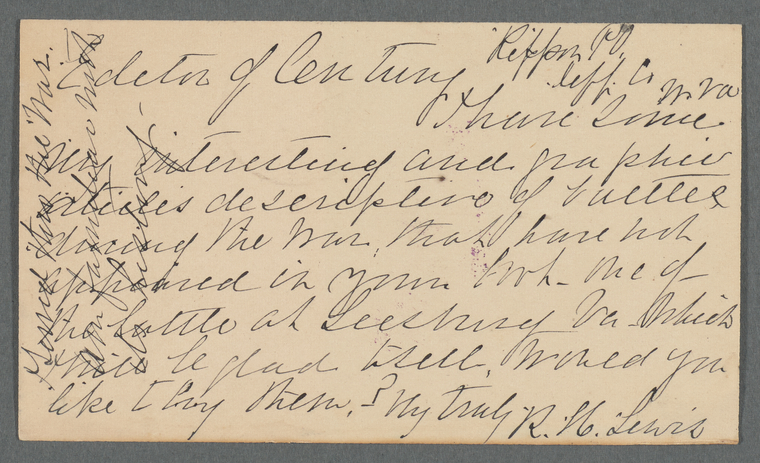 Rippon P.O.
Jeff. Co W. Va
Editor of Century
I have some
very interesting and graphic
articles descriptive of battles
during the War, that have not
appeared in your book - one of
the battle at Leesburg Va - Which
I will be glad to sell, Would you
like to buy them? Vy truly R. H. Lewis
I served thro the War.
am familiar with